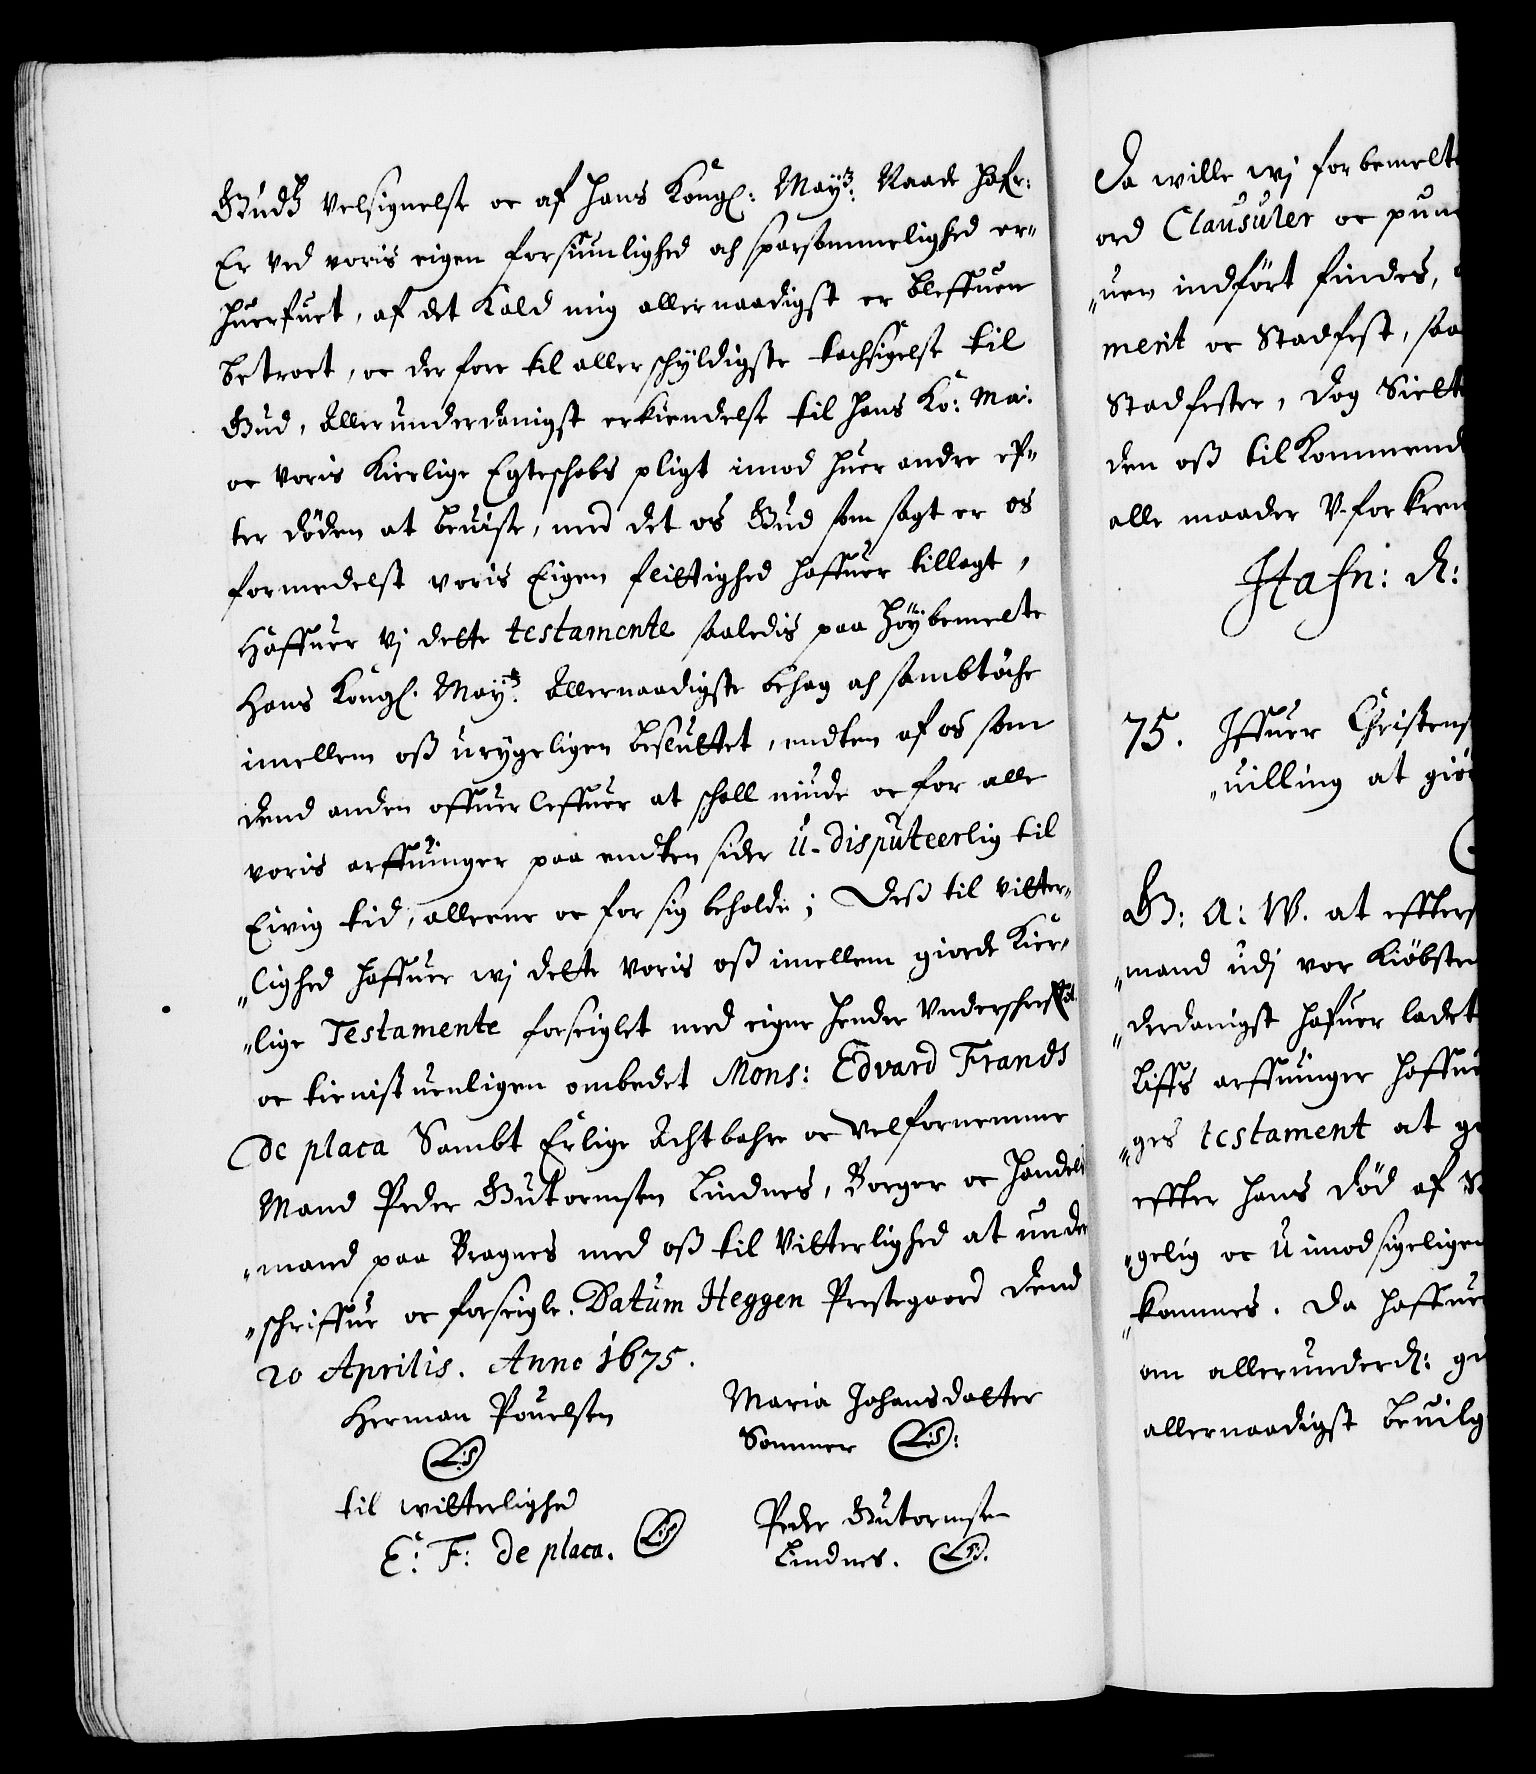 Gudß velsignelse oc af hans Kongl: May:ts Naade hafr:
Er ved voris eigen forsiunlighed och sparsommelighed er=
huerfuet, af det Kald mig allernaadigst er bleffuen
betroet, oc der fore til allerschyldigste tachsigelse til
Gud, Allerunderdanigst erkiendelse til hans Ko: Mai:
oc voris Kierlige Egteschabs pligt imod huer andre ef=
ter döden at beuise, med det os Gud som sagt er os
formedelst voris Eigen flittighed haffuer tillagt,
Haffuer vj dette testamente saaledis paa Höybemelte
Hans Kongl. May:ts Allernaadigste behag och sambtöche
imellem oß urygeligen besluttet, endten af os som
dend anden offuerleffuer at schall niude oc for alle
voris arffuinger paa endten sider U-disputeerlig til
Eivig tid, alleene oc for sig beholde; Deß til vitter=
"lighed haffuer wj dette voris oß imellem giorde Kier=
"lige Testamente forseiglet med eigne hender Underschreffuet
oc tienistuenligen ombedet Mons: Edvard Frands
de placa Sambt Erlige Achtbahre oc velfornemme
Mand Peder Gutormsen Lindnes, Borger oc Handels
"mand paa Bragnes med oß til Vitterlighed at under
"schriffue oc forseigle. Datum Heggen Prestegaard dend
20 Aprilis. Anno 1675.
Herman Pouelsen
Maria Johansdatter
Sommer L:S:
L:S
til witterlighed
E: F: de placa. L:S
Peder Gutormsen
Lindnes. L:S.
Da wille wj forbemelte
ord Clausuler oc pun
"uen indfört findes,
ment oc Stadfest, saa
Stadfester, Dog Sielt
den oß tilkommend
alle maader U-forkren
Hafn: d:
75. Iffuer Christens
"uilling at giö
G: A: W. at effters
"mand udj vor Kiöbsted
"derdanigst hafuer ladet
Liffs arffuinger haffue
"ges testament at g
effter hans död af
"gelig oc Uimodsigeligen
"kommes. Da haffuer
om allerunderd: g
allernaadigst beuilg